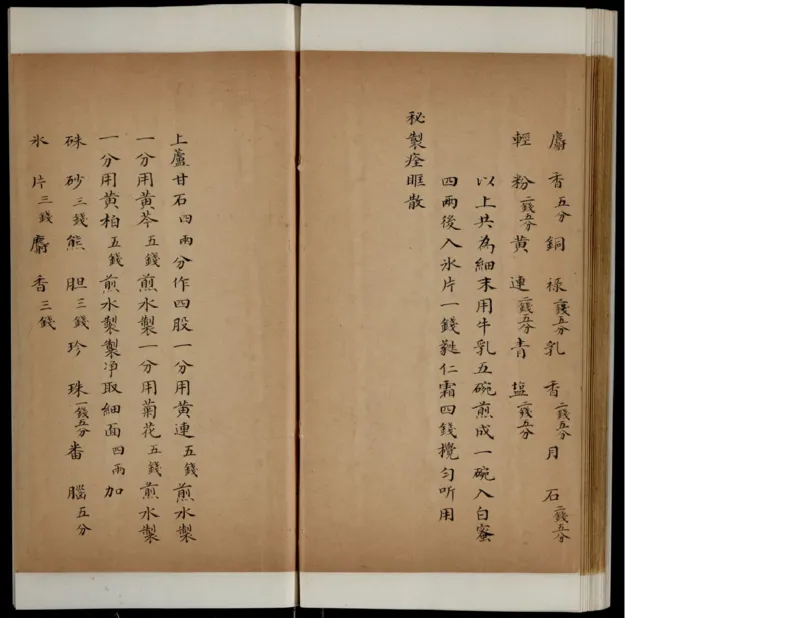 麝香五分銅禄二錢五分乳香二錢五分月石二錢五分
輕粉二錢五分黄連二錢五分青盐二錢五分
以上共為細末用牛乳五碗煎成一碗入白蜜
四兩後入氷片一錢蕤仁霜四錢攪匀听用
秘製痊眶散
上蘆甘石四兩分作四股一分用黄連五錢煎水製
一分用黄芩五錢煎水製一分用菊花五錢煎水製
一分用黄柏五錢煎水製製净取細面四兩加
硃砂三錢熊胆三錢珍珠一錢五分番腦五分
氷片三錢麝香三錢